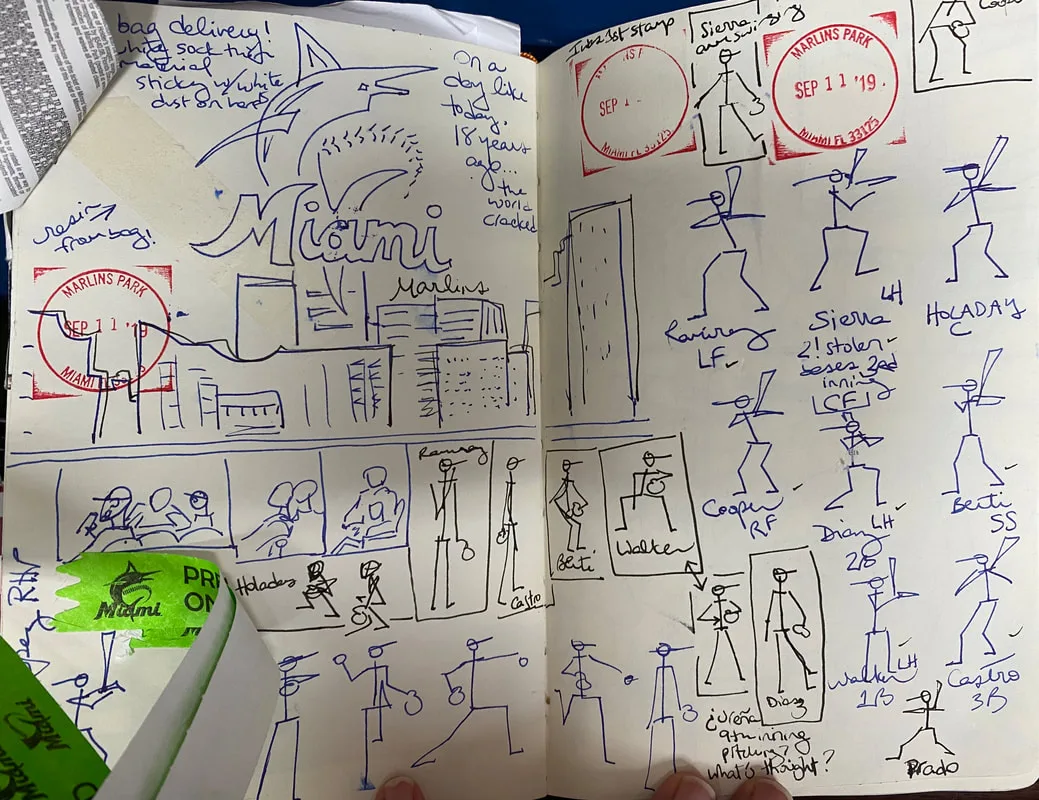 bag delivery!
white sock tight
material
sticky w/ white
dust on hands
On a
day like
today,
18 years
ago...
the
world
cracked
Miami
Marlins
resin
from bag!
MARLINS PARK
SEP 11 '19
MIAMI
Ramirez
Holaday
Castro
RHP
Miami
PR
ON
Miami
1st stamp
SEP 1
Miami FL 33125
Sierra
MARLINS PARK
SEP 11 '19.
Miami FL 33125
Cooper
Ramirez
LF
LH
Sierra
2! stolen
bases 2nd
inning
CF
HOLADAY
C
Cooper
RF
LH
Diaz
2B
Berti
SS
Berti
Walker
Diaz
Walker LH
1B
Castro
3B
Prado
¿Ureña
9th inning
pitching?
what's thought?